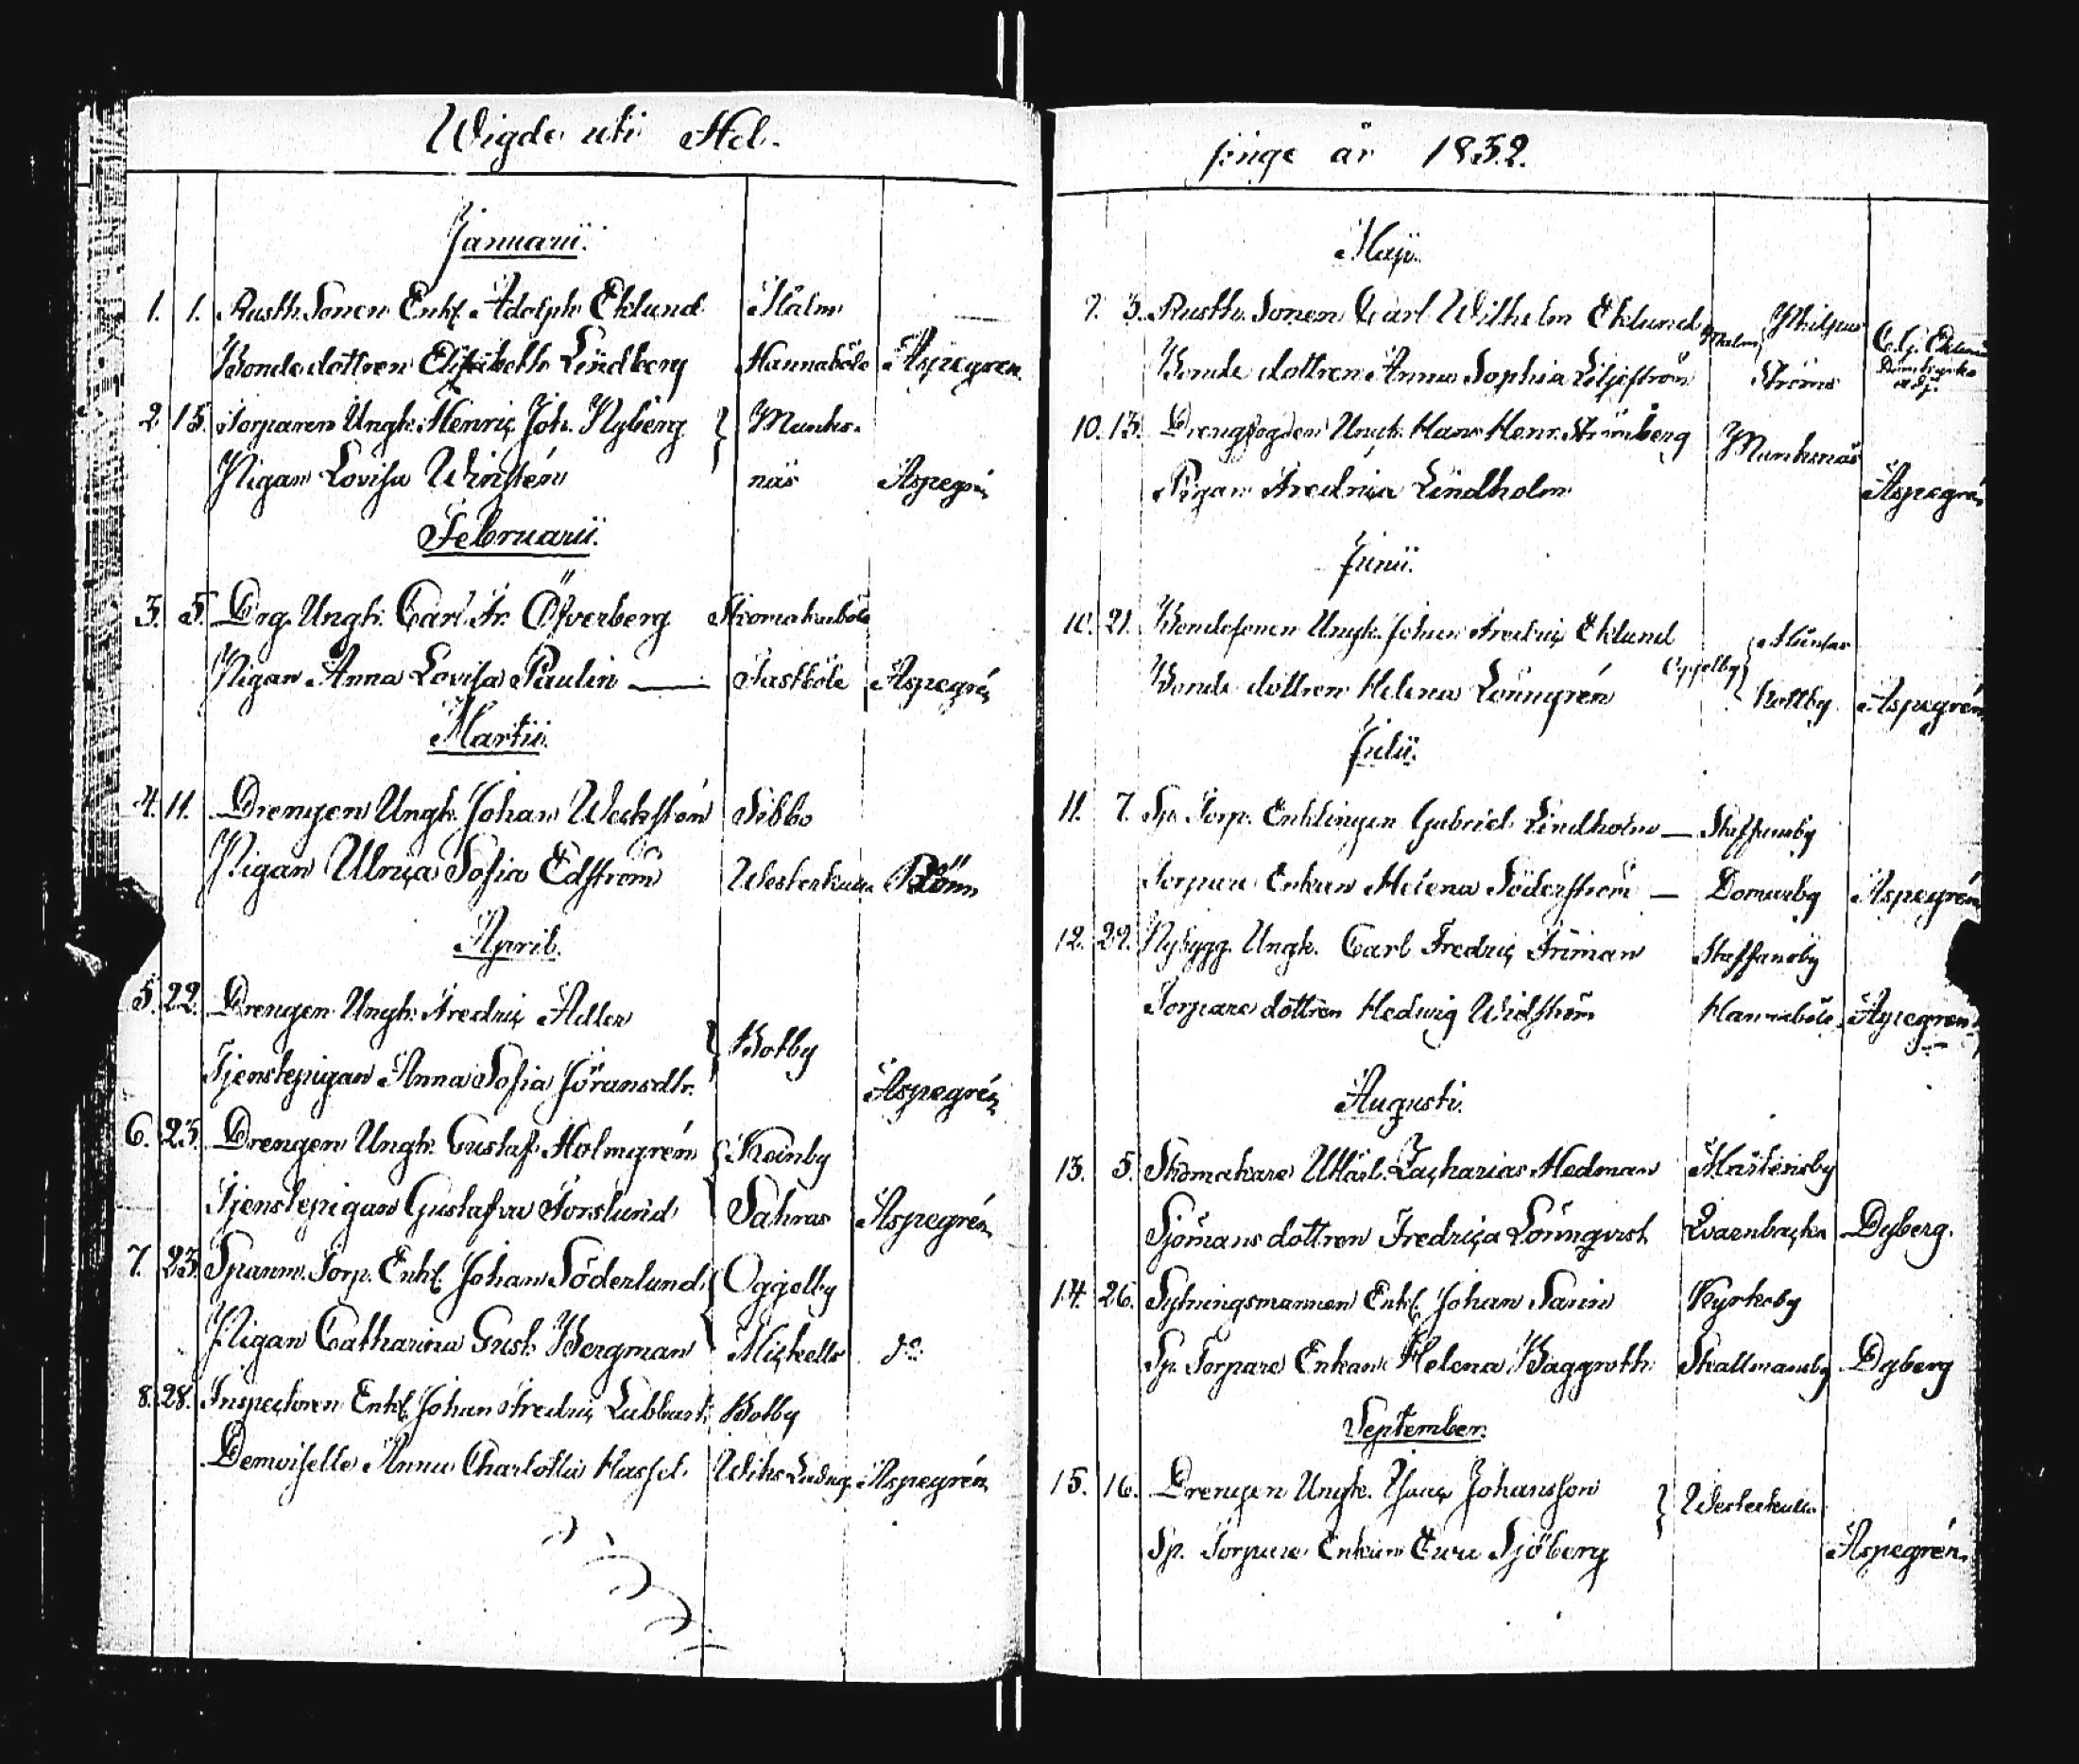 Wigde uti Hel-
Januarii.
1. 1. Rusth. Sonen Enkl. Adolph Eklund Malm
Bonde dottren Elisabeth Lindberg Hannaböle Aspegren
2. 15. Torparen Ungk. Henric Joh. Nyberg } Munks-
Pigan Lovisa Winstén näs Aspegrén
Februarii.
3. 5. Drg. Ungk. Carl Fr. Öfverberg Skomakarböle
Pigan Anna Lovisa Paulin — Fastböle Aspegrén
Martii.
4. 11. Drengen Ungk. Johan Weckstén Sibbo
Pigan Ulrica Sofia Edström Westerkulla Rönn
April.
5. 22. Drengen Ungk. Fredric Adler
} Botby
Tjenstepigan Anna Sofia Jöransdtr. Aspegrén
6. 23. Drengen Ungk. Gustaf Holmgrén { Reinby
Tjenstepigan Gustafva Forslund Aspegrén
7. 23. Spanm. Torp. Enkl. Johan Söderlund { Oggelby
Pigan Catharina Gust. Bergman Mickells do
8. 28. Inspectoren Enkl. Johan Fredric Botby
Demoiselle Anna Charlotta Hassel Aspegrén
singe år 1852.
Maji.
9. 3. Rusth. Sonen Carl Wilhelm Eklund Malm
Bonde dottren Anna Sophia Liljeström Ströms C. G. Eklund
adj.
10. 13. Drengfogden Ungk. Hans Henr. Strömberg Munksnäs
Pigan Fredrica Lindholm Aspegrén
Junii.
10. 21. Bondesonen Ungk. Johan Fredric Eklund
Oggelby
Bonde dottren Helena Lönngrén Nottby Aspegrén
Julii.
11. 7. Sp. Torp. Enklingen Gabriel Lindholm — Staffansby
Torpare Enkan Helena Söderström — Domarby Aspegrén
12. 22. Nybygg. Ungk. Carl Fredric Friman Staffansby
Torpare dottren Hedwig Widström Hannaböle Aspegren
Augusti.
13. 5. Skomakare Zacharias Hedman Mårtensby
Sjömans dottren Fredrica Lönnqvist Qvarnbacka Dyberg.
14. 26. Sytningsmannen Enkl. Johan Sarin Kyrkoby
Sp. Torpare Enkan Helena Baggroth Skattmansby Dyberg
September.
15. 16. Drengen Ungk. Isaac Johansson } Westerkulla
Sp. Torpare Enkan Ewa Sjöberg Aspegrén.